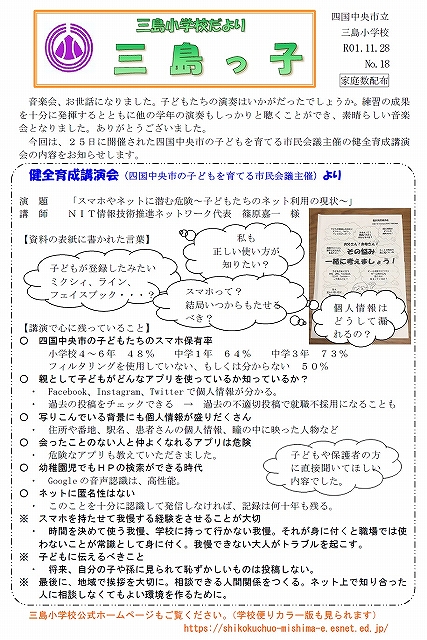 三島小学校だより
三島っ子
四国中央市立
三島小学校
R01.11.28
No.18
家庭数配布
音楽会、お世話になりました。子どもたちの演奏はいかがだったでしょうか。練習の成果
を十分に発揮するとともに他の学年の演奏もしっかりと聴くことができ、素晴らしい音楽
会となりました。ありがとうございました。
今回は、25日に開催された四国中央市の子どもを育てる市民会議主催の健全育成講演
会の内容をお知らせします。
健全育成講演会（四国中央市の子どもを育てる市民会議主催）より
演　題　「スマホやネットに潜む危険～子どもたちのネット利用の現状～」
講　師　NIT情報技術推進ネットワーク代表　篠原嘉一　様
【資料の表紙に書かれた言葉】
私も
正しい使い方が
知りたい？
子どもが登録したみたい
ミクシィ、ライン、
フェイスブック・・・？
スマホって？
結局いつからもたせる
べき？
その悩み
一緒に考えましょう！
個人情報は
どうして漏
れるの？
【講演で心に残っていること】
○　四国中央市の子どもたちのスマホ保有率
小学校4～6年　48％　中学1年　64％　中学3年　73％
フィルタリングを使用していない、もしくは分からない　50％
○　親として子どもがどんなアプリを使っているか知っているか？
・　Facebook、Instagram、Twitterで個人情報が分かる。
・　過去の投稿をチェックできる　→　過去の不適切投稿で就職不採用になることも
○　写りこんでいる背景にも個人情報が盛りだくさん
・　住所や番地、駅名、患者さんの個人情報、瞳の中に映った人物など
○　会ったことのない人と仲よくなれるアプリは危険
・　危険なアプリも教えていただきました。
○　幼稚園児でもHPの検索ができる時代
・　Googleの音声認識は、高性能。
○　ネットに匿名性はない
・　このことを十分に認識して発信しなければ、記録は何十年も残る。
子どもや保護者の方
に直接聞いてほしい
内容でした。
※　スマホを持たせて我慢する経験をさせることが大切
・　時間を決めて使う我慢、学校に持って行かない我慢。それが身に付くと職場では使
わないことが常識として身に付く。我慢できない大人がトラブルを起こす。
※　子どもに伝えるべきこと
・　将来、自分の子や孫に見られて恥ずかしいものは投稿しない。
※　最後に、地域で挨拶を大切に。相談できる人間関係をつくる。ネット上で知り合った
人に相談しなくてもよい環境を作るために。
三島小学校公式ホームページもご覧ください。（学校便りカラー版も見られます）
https://shikokuchuo-mishima-e.esnet.ed.jp/